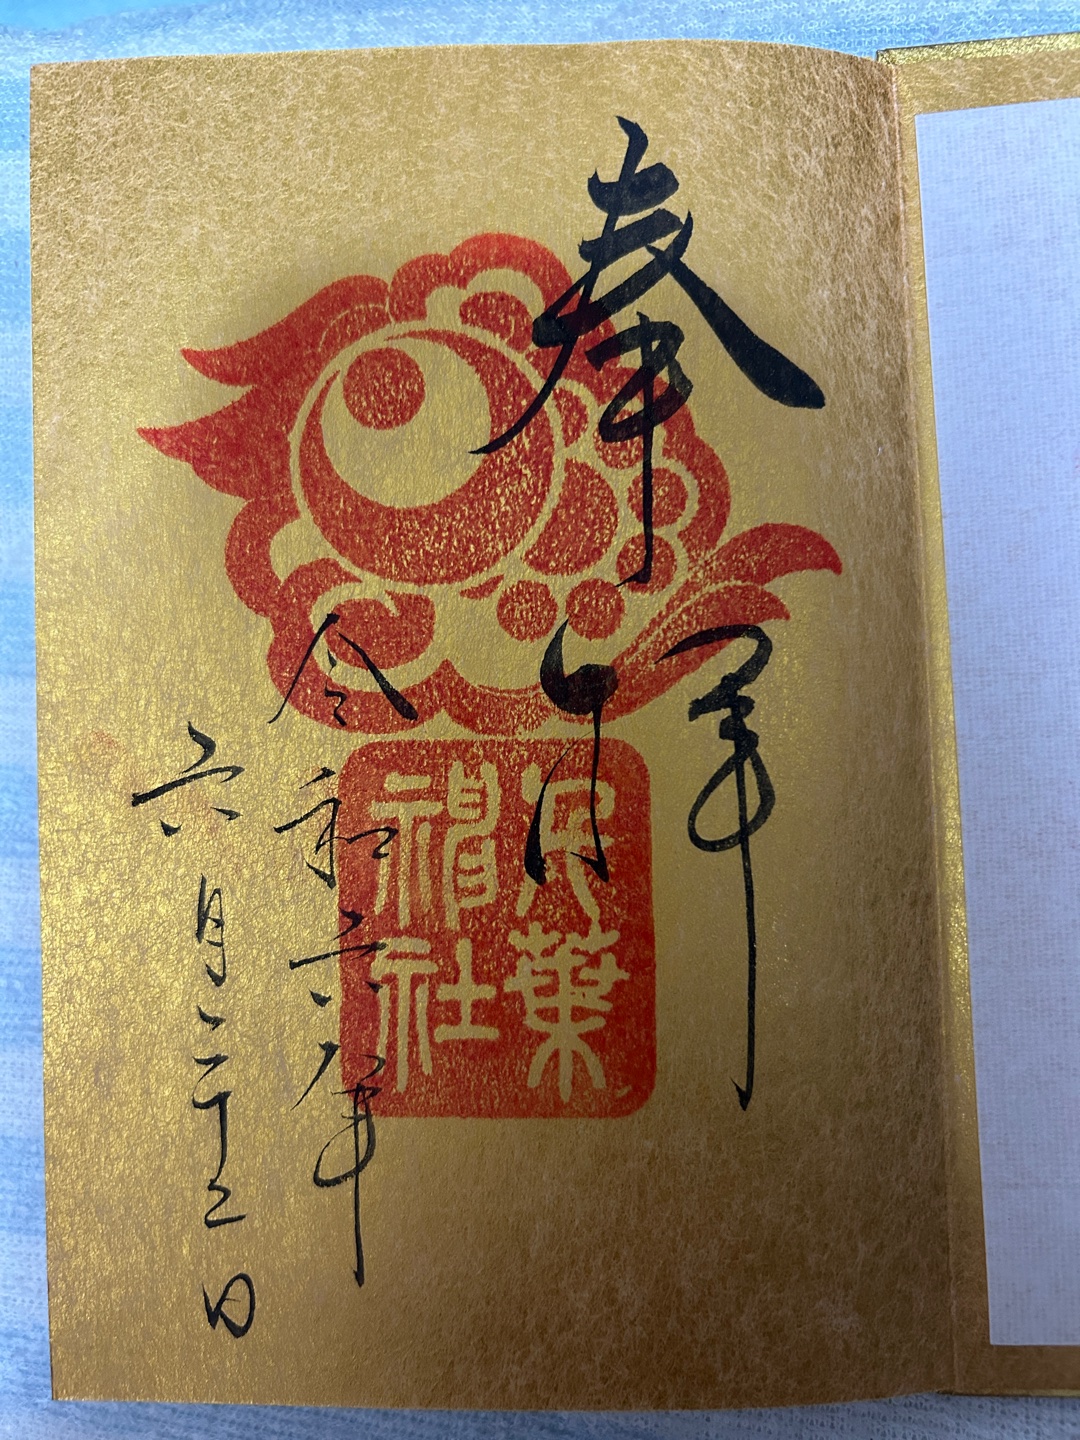 奉拝
令和六年
六月二十二日
葉
神社